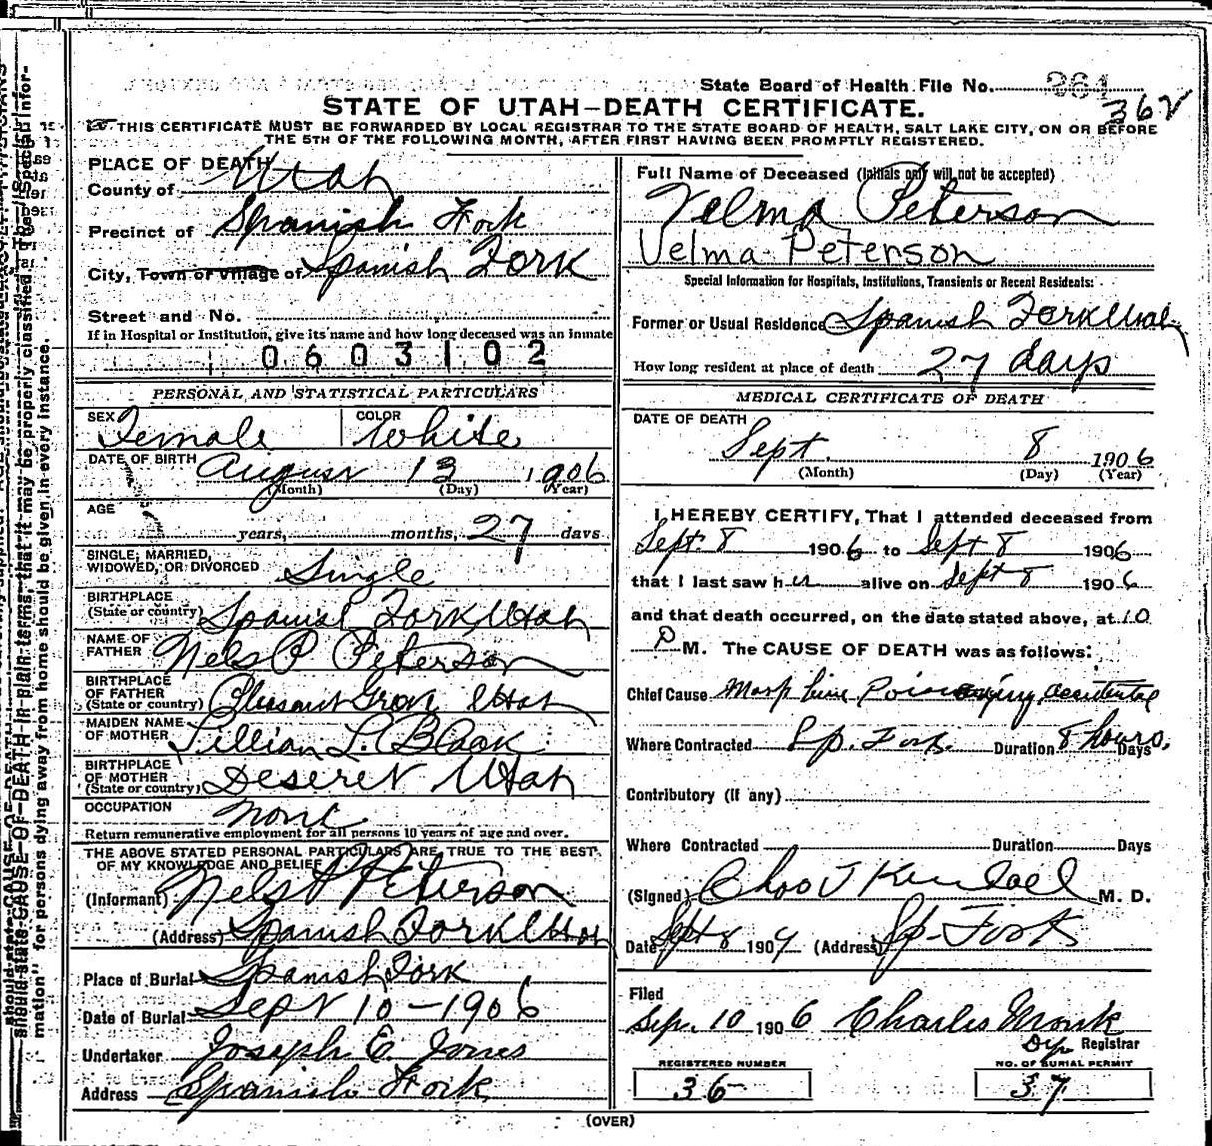 State Board of Health File No. 361
362
STATE OF UTAH—DEATH CERTIFICATE.
THIS CERTIFICATE MUST BE FORWARDED BY LOCAL REGISTRAR TO THE STATE BOARD OF HEALTH, SALT LAKE CITY, ON OR BEFORE
THE 5TH OF THE FOLLOWING MONTH, AFTER FIRST HAVING BEEN PROMPTLY REGISTERED.
PLACE OF DEATH
County of Utah
Precinct of Spanish Fork
City, Town or Village of Spanish Fork
Street and No.
If in Hospital or Institution, give its name and how long deceased was an inmate
0603102
PERSONAL AND STATISTICAL PARTICULARS
SEX Female COLOR White
DATE OF BIRTH August 13 1906
(Month) (Day) (Year)
AGE
years, months, 27 days
SINGLE, MARRIED,
WIDOWED, OR DIVORCED Single
BIRTHPLACE
(State or country) Spanish Fork Utah
NAME OF
FATHER Nels P Peterson
BIRTHPLACE
OF FATHER
(State or country) Pleasant Grove Utah
MAIDEN NAME
OF MOTHER Lillian L. Black
BIRTHPLACE
OF MOTHER
(State or country) Deseret Utah
OCCUPATION None
Return remunerative employment for all persons 10 years of age and over.
THE ABOVE STATED PERSONAL PARTICULARS ARE TRUE TO THE BEST
OF MY KNOWLEDGE AND BELIEF
(Informant) Nels P Peterson
(Address) Spanish Fork Utah
Place of Burial Spanish Fork
Date of Burial Sept 10-1906
Undertaker Joseph E. Jones
Address Spanish Fork
Full Name of Deceased (Initials only will not be accepted)
Velma Peterson
Velma Peterson
Special Information for Hospitals, Institutions, Transients or Recent Residents:
Former or Usual Residence Spanish Fork Utah
How long resident at place of death 27 days
MEDICAL CERTIFICATE OF DEATH
DATE OF DEATH
Sept. 8 1906
(Month) (Day) (Year)
I HEREBY CERTIFY, That I attended deceased from
Sept. 8 1906 to Sept 8 1906
that I last saw her alive on Sept 8 1906
and that death occurred, on the date stated above, at 10
P M. The CAUSE OF DEATH was as follows:
Chief Cause Morphine Poisoning accidental
Where Contracted Sp. Fork Duration 8 hours Days
Contributory (if any)
Where Contracted Duration Days
(Signed) M. D.
Date Sept 8 190 (Address) Sp. Fork
Filed
Sep. 10 1906 Charles Monk
Dep Registrar
REGISTERED NUMBER NO. OF BURIAL PERMIT
36 37
(OVER)
should state CAUSE OF DEATH in plain terms, that it may be properly classified. The "Special Infor-
mation" for persons dying away from home should be given in every instance.